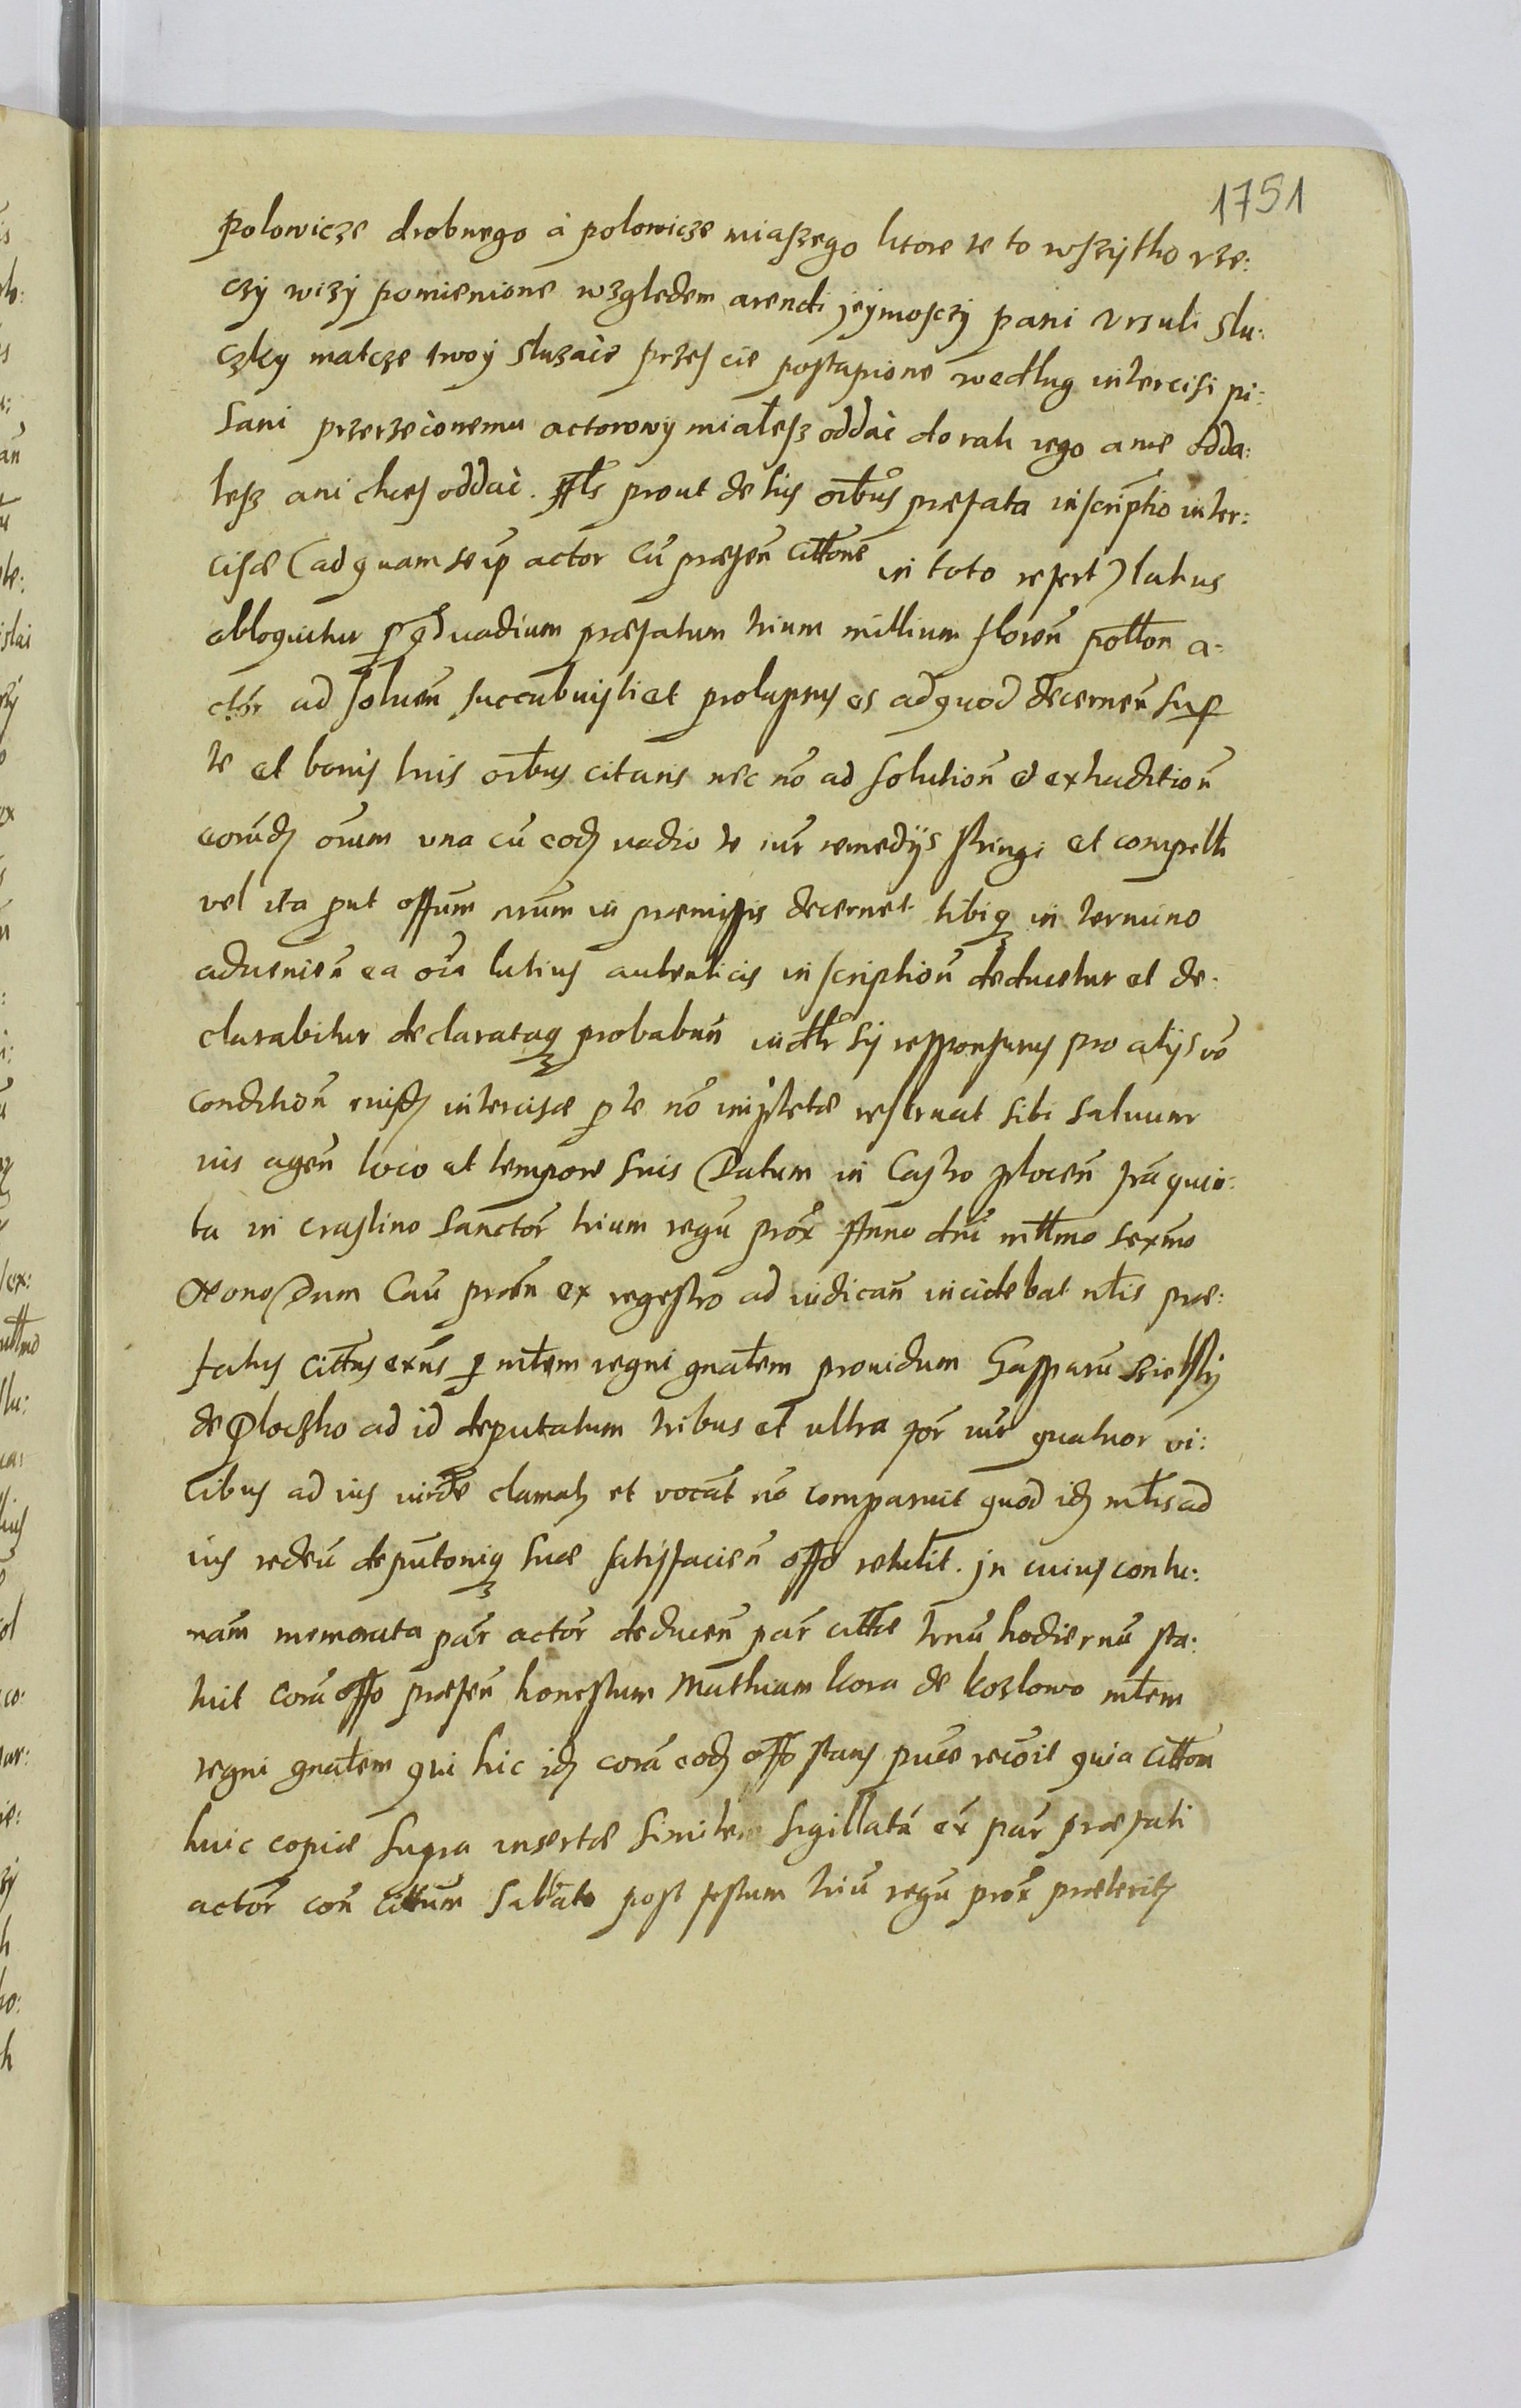 1751
polowicze drobnego à polowicze miaszego ktore te to wszytko rze:
czÿ wizÿ pomienione względem arendi jeÿmosczÿ pani Ursuli Slu:
czkiÿ matcze twoÿ sluzaìe przes cie postąpione według intercisi pi:
sani przerzeċonemu actorowÿ miałesz oddàc do rąk iego a nie odda:
lesz ani chces oddàc. prout de his oībus præfata inscriptio inter:
cisæ (ad quam se ip actor cū præsen cittōne in toto refert) latius
obloquitur p qd vadium præfatum trium millium floren̄ pollon a:
ctōr ad soluen̄ succubuisti et prolapsus es ad quod decernen̄ sup
te et bonis tuis oībus citaris nec nō ad solution̄ et extradition̄
eorūd oīum una cū eod vadio te iur remedÿs stringi et compelli
vel ita put offum nrūm in præmissis decernet tibiq in termino
aduenien̄ ea oīa latius autenticis inscription̄ deducetur et de:
clarabitur declarataq probabun̄ iudltr sis responsurus pro alÿs vō
condition̄ eiusd intercisæ p te nō impletæ reseruat sibi saluum
ius agen̄ loco et tempore suis Datum in Castro plocen̄ fra quin:
ta in crastino Sanctor trium regū prox Anno dni mīllmo sexmo
Nono Dum Cau præn ex regestro ad iudican̄ incidebat ntis præ:
fatus citttus exns p mtem regni gnałem prouidum Gasparū Bielski
de Ploczko ad id deputatum tribus et ultra for iur quatuor vi:
cibus ad ius iurde clamat et vocat nō comparuit quod id mtis ad
ius redeū deputoniq suæ satisfacien̄ offo retulit. Jn cuius contu:
mām memorata par actor deducen̄ par cittæ trnū hodiernū sta:
tuit corā offo præsen̄ honestum Mathiam kora de kozlowo mtem
regni gnałem qui hic id corā eod offo stans puce recoit quia citton
huic copiæ supra insertæ similem sigillatā ex par præfati
actor con cittum Sabbato post festum triū regū prox præterit